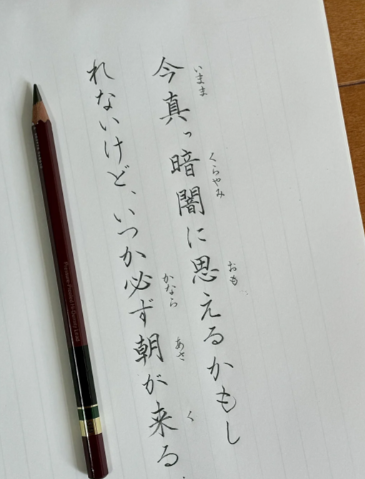 今真っ暗闇に思えるかもし
いまま くらやみ おも
れないけど、いつか必ず朝が来る
かなら あさ く